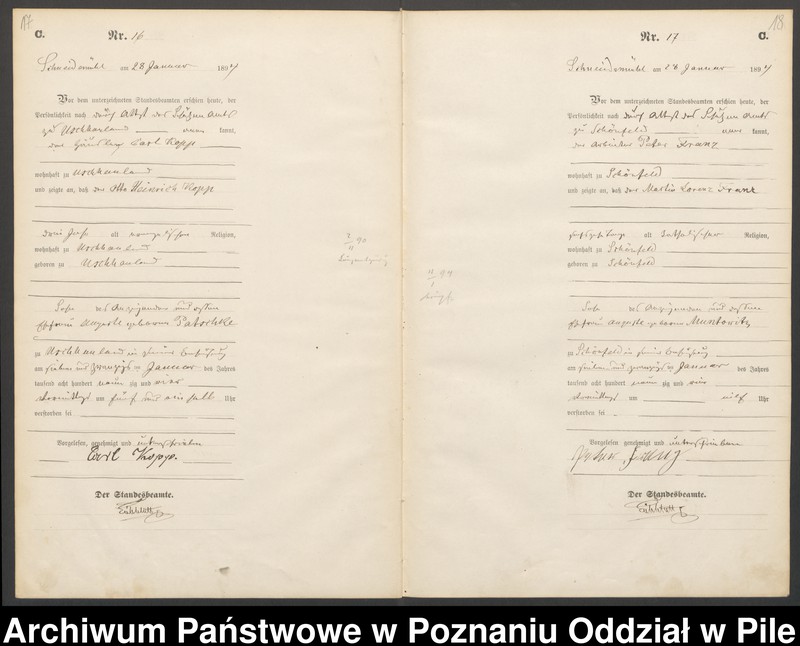 17
C.
Nr. 16
Schneidemühl am 28 Januar 1894
Vor dem unterzeichneten Standesbeamten erschien heute, der
Persönlichkeit nach durch Attest des Schulzen Amts
zu Uschhauland kannt,
der Häusler Carl Kopp
wohnhaft zu Uschhauland
und zeigte an, daß der Otto Heinrich Kopp
drei Jahre alt evangelischer Religion,
wohnhaft zu Uschhauland
geboren zu Uschhauland
Sohn des Anzeigenden und dessen
Ehefrau Auguste geborenen Patschke
zu Uschhauland in seiner Behausung
am sieben und zwanzigsten Januar des Jahres
tausend acht hundert neun zig und vier
Vormittags um fünf und ein halb Uhr
verstorben sei
Vorgelesen, genehmigt und unterschrieben
Carl Kopp.
Der Standesbeamte.
90
18
Nr. 17
C.
Schneidemühl am 28 Januar 1894
Vor dem unterzeichneten Standesbeamten erschien heute, der
Persönlichkeit nach durch Attest des Schulzen Amts
zu Schönfeld kannt,
der Arbeiter Peter Franz
wohnhaft zu Schönfeld
und zeigte an, daß der Martin Lorenz Franz
alt katholischer Religion,
wohnhaft zu Schönfeld
geboren zu Schönfeld
Sohn des Anzeigenden und dessen
Ehefrau Auguste geborenen Muntowitz
zu Schönfeld in seiner Behausung
am sieben und zwanzigsten Januar des Jahres
tausend acht hundert neun zig und vier
Vormittags um elf Uhr
verstorben sei
Vorgelesen, genehmigt und unterschrieben
Peter Franz
Der Standesbeamte.
94
Archiwum Państwowe w Poznaniu Oddział w Pile